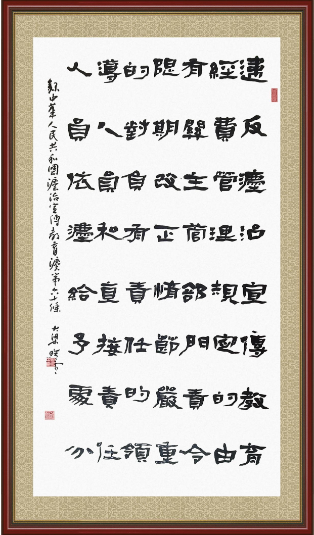 違反灋治宣傳教育
經費管理規定的由
有關主管部門責令
限期改正情節嚴重
的對負有責任的領
導人員和直接責任
人員依灋給予處分
錄中華人民共和國灋治宣傳教育灋第六十條 大梁